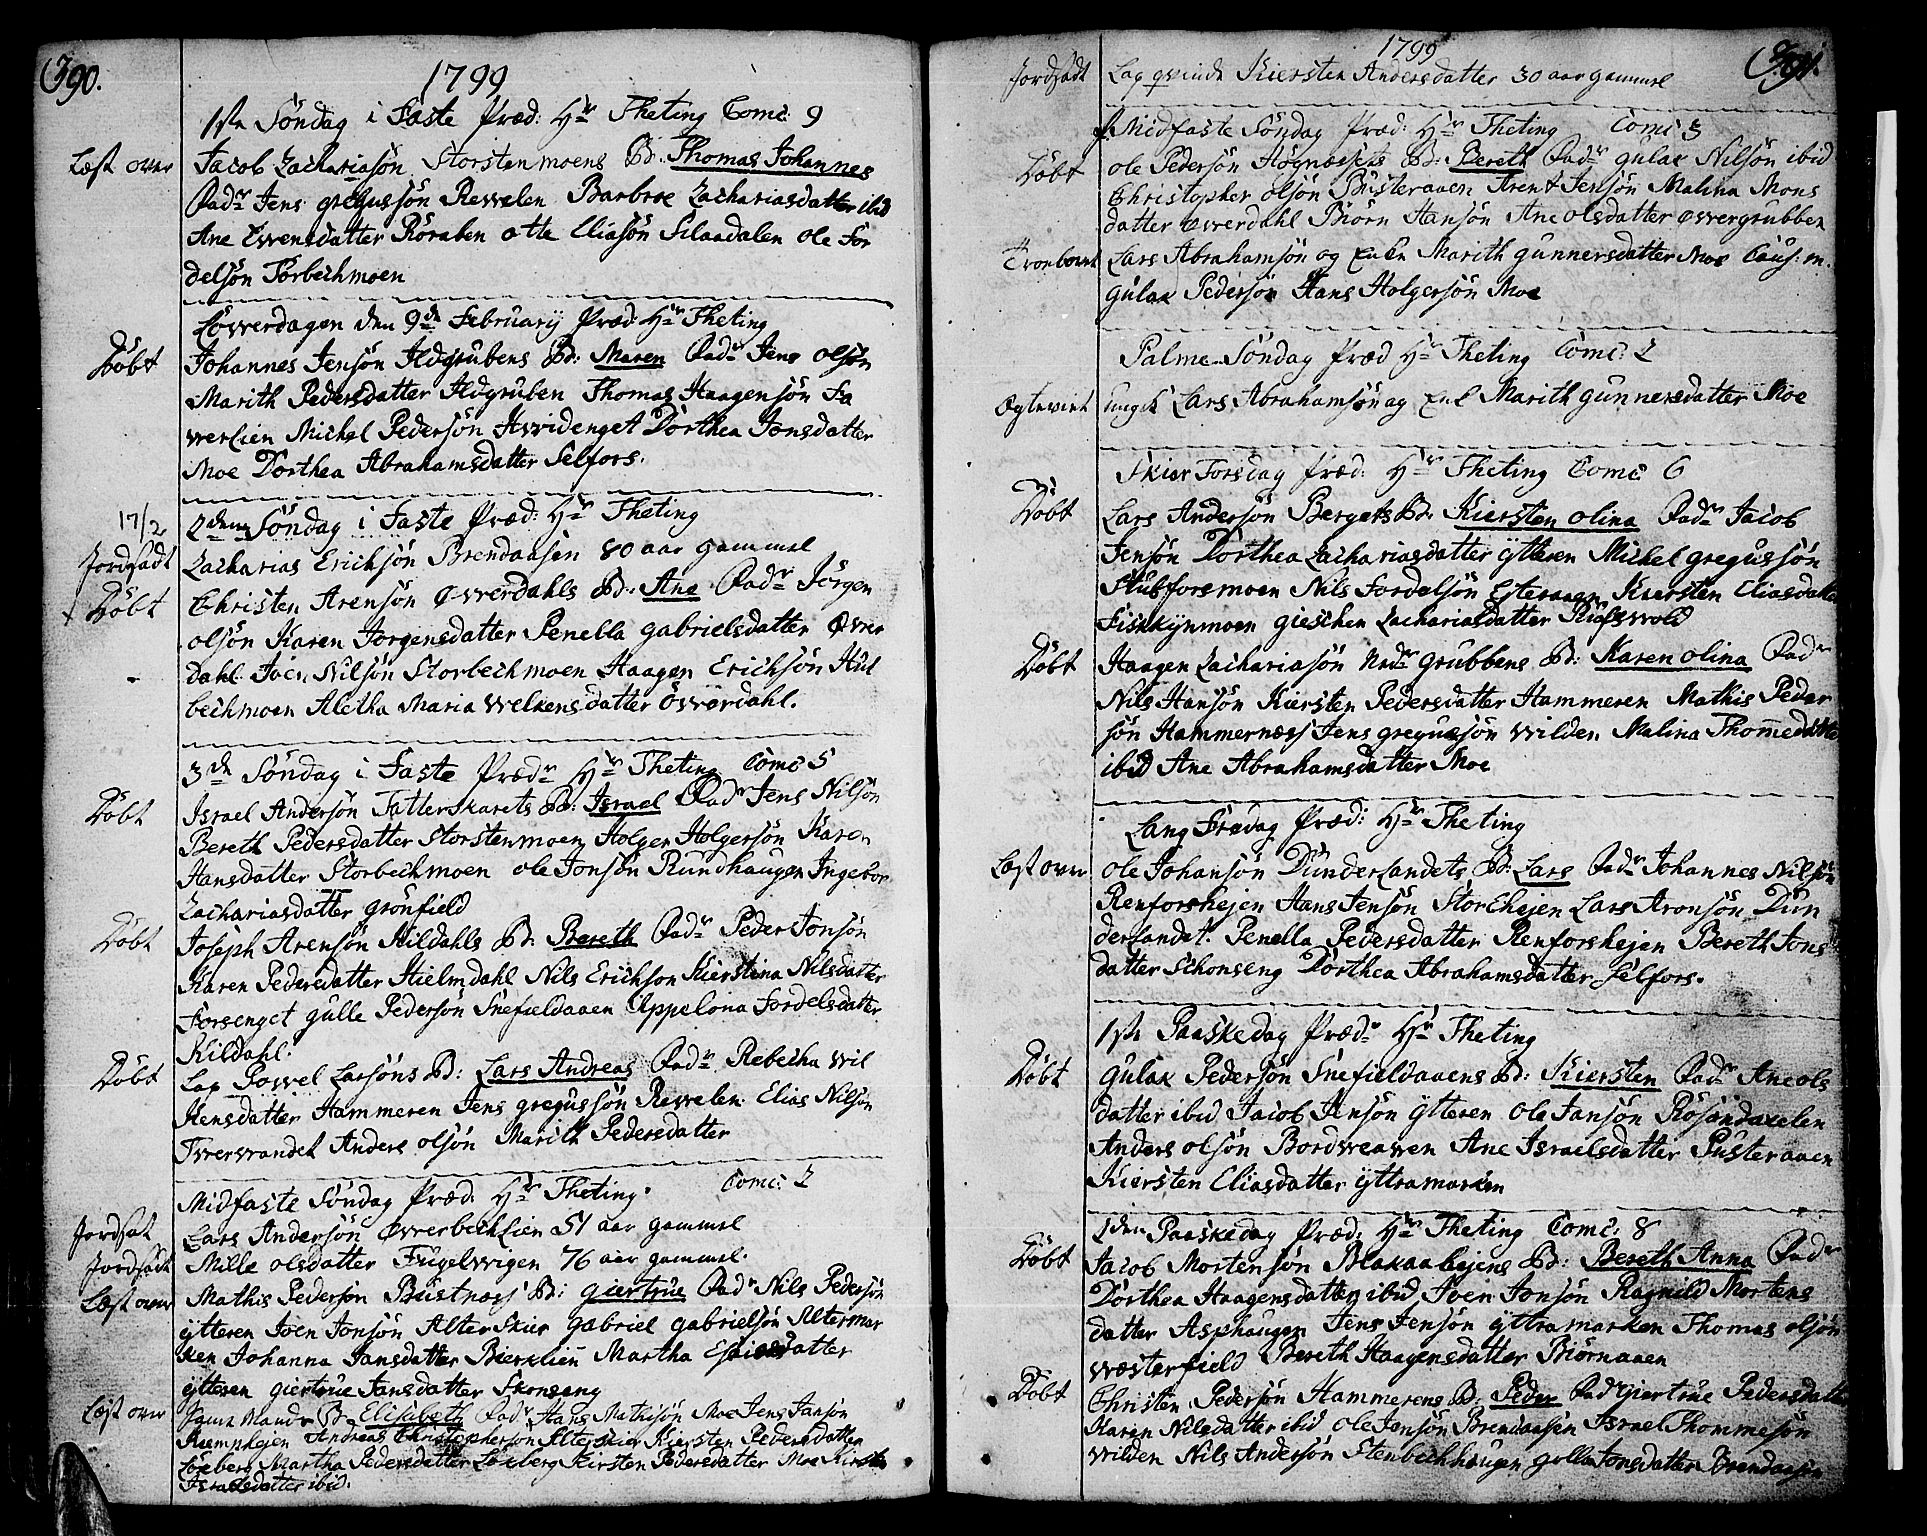 390.
1799
1ste Söndag i Faste Præd: Hr Theting Comc: 9
Læst over Jacob Zachariasön Storstenmoens B: Thomas Johannes
Padr Jens gregussön Revelen Barbroe Zachariasdatter ibid
Ane Evensdatter Röraben otte Eliasön Silaadalen ole For
delsön Torbechmoen
Löwerdagen den 9de Februarij Præd: Hr Theting
Döbt Johannes Jensön Ildgrubens B: Maren Padr Jens olsön
Marith Pedersdatter Ildgruben Thomas Haagensön Fa
verlien Michel Pedersön Hvidenget Dorthea Jonsdatter
Moe Dorthea Abrahamsdatter Selfors.
17/2 2den Söndag i Faste Præd: Hr Theting
Jordsadt Zacharias Erichsön Brendaasen 80 aar gammel
Döbt Christen Arensön Öwerdahls B: Ane Padr Jörgen
olsön Karen Jorgensdatter Penella gabrielsdatter Öwer
dahl Joen Nilsön Storbechmoen Haagen Erichsön Hul
bechmoen Aletha Maria Welkensdatter Öwerdahl.
3de Söndag i Faste Prædr Hr Theting Comc 5
Döbt Israel Andersön Fatterskarets B: Israel Padr Jens Nilsön
Bereth Pedersdatter Storstenmoen Holger Holgersön Karen
Hansdatter Storbechmoen ole Jonsön Rundhaugen Ingebor
Zachariasdatter grönfield
Döbt Joseph Arensön Kildahls B: Bereth Padr Peder Jonsön
Karen Pedersdatter Hielmdahl Nils Erichsön Kierstina Nilsdatter
Forsenget gulle Pedersön Snefieldaaen Appelona Fordelsdatter
Kildahl.
Döbt Lap Powel Larsöns B: Lars Andreas Padr Rebecha Wil
kensdatter Hammeren Jens gregussön Revelen Elias Nilsön
Tvervandet Anders olsön Marith Pedersdatter
Midfaste Söndag Præd: Hr Theting. Comc: 2
Jordsat Lars Andersön Öwerbechlien 51 aar gammel
Jordsadt Mille olsdatter Fugelvigen 76 aar gammel.
Læst over Mathis Pedersön Bustnæss B: giertrue Padr Nils Pedersön
ytteren Joen Jonsön Alterskier gabriel gabrielsön Altermar
ken Johanna Jansdatter Bierklien Martha datter
ytteren giertrue Jansdatter Skonseng
Læst over B: Elisabeth Padr Hans Mathisön Moe Jens Jansön
Kemphejen Andreas Christophersön Alterskier Kiersten Pedersdatter
Löxberg Martha Pedersdatter Löxberg Kirsten Pedersdatter Moe Kirsten
Israelsdatter ibid.
391.
1799
Jordsadt Lap qvinde Kiersten Andersdatter 30 aar gammel
Midfaste Söndag Præd: Hr Theting Comc 3
Döbt ole Pedersön Högnæsets B: Bereth Padr gulax Nilsön ibid
Christopher olsön Busteraaen Arent Jensön Malina Mons
datter Owerdahl Biörn Hansön Ane olsdatter Owergrubben
Troeloved Lars Abrahamsön og Enken Marith gunnersdatter Moe Caus: m.
gulax Pedersön Hans Holgersön Moe
Palme Söndag Præd Hr Theting Comc: 2
Ægteviet ungk Lars Abrahamsön og Enk Marith gunnersdatter Moe
Skier Torsdag Præd: Hr Theting Comc 6
Döbt Lars Andersön Bergets B: Kiersten olina Padr Jacob
Jensön Dorthea Zachariasdatter ytteren Michel gregussön
Stubforsmoen Nils Fordelsön Esteraaen Kiersten Eliasdatter
Fiskkynmoen gieschen Zachariasdatter
Döbt Haagen Zachariasön Nedr grubbens B: Karen olina Padr
Nils Hansön Kiersten Pedersdatter Hammeren Mathis Peder
sön Hammernæss Jens gregussön Wilden Malina Thommedatter
ibid Ane Abrahamsdatter Moe
Lang Fredag Præd: Hr Theting
Læst over ole Johansön Dunderlandets B: Lars Padr Johannes Nilsön
Renforshejen Hans Jensön Storchejen Lars Aronsön Dun
derlandet. Penella Pedersdatter Renforshejen Bereth Jons
datter Schonseng Dorthea Abrahamsdatter Selfors.
1ste Paaskedag Præd: Hr Theting
Döbt gulax Pedersön Snefieldaaens B: Kiersten Padr Ane ols
datter ibid Jacob Jensön ytteren ole Jansön
Anders olsön Ane Israelsdatter Pusteraaen
Kiersten Eliasdatter yttramarken
2den Paaskedag Præd: Hr Theting Comc: 8
Döbt Jacob Mortensön Blakaahejens B: Bereth Anna Padr
Dorthea Haagensdatter ibid Joen Jonsön Ragnild Mortens
datter Asphaugen Jens Jensön yttramarken Thomas olsön
Westerfield Bereth Haagensdatter Biörnaaen
Döbt Christen Pedersön Hammerens B: Peder Padr giertrue Pedersdatter
Karen Nilsdatter ibid ole Jonsön Brendaasen Israel Thommesön
Wilden Nils Andersön Stenbechhaugen gulle Jonsdatter Brendaasen